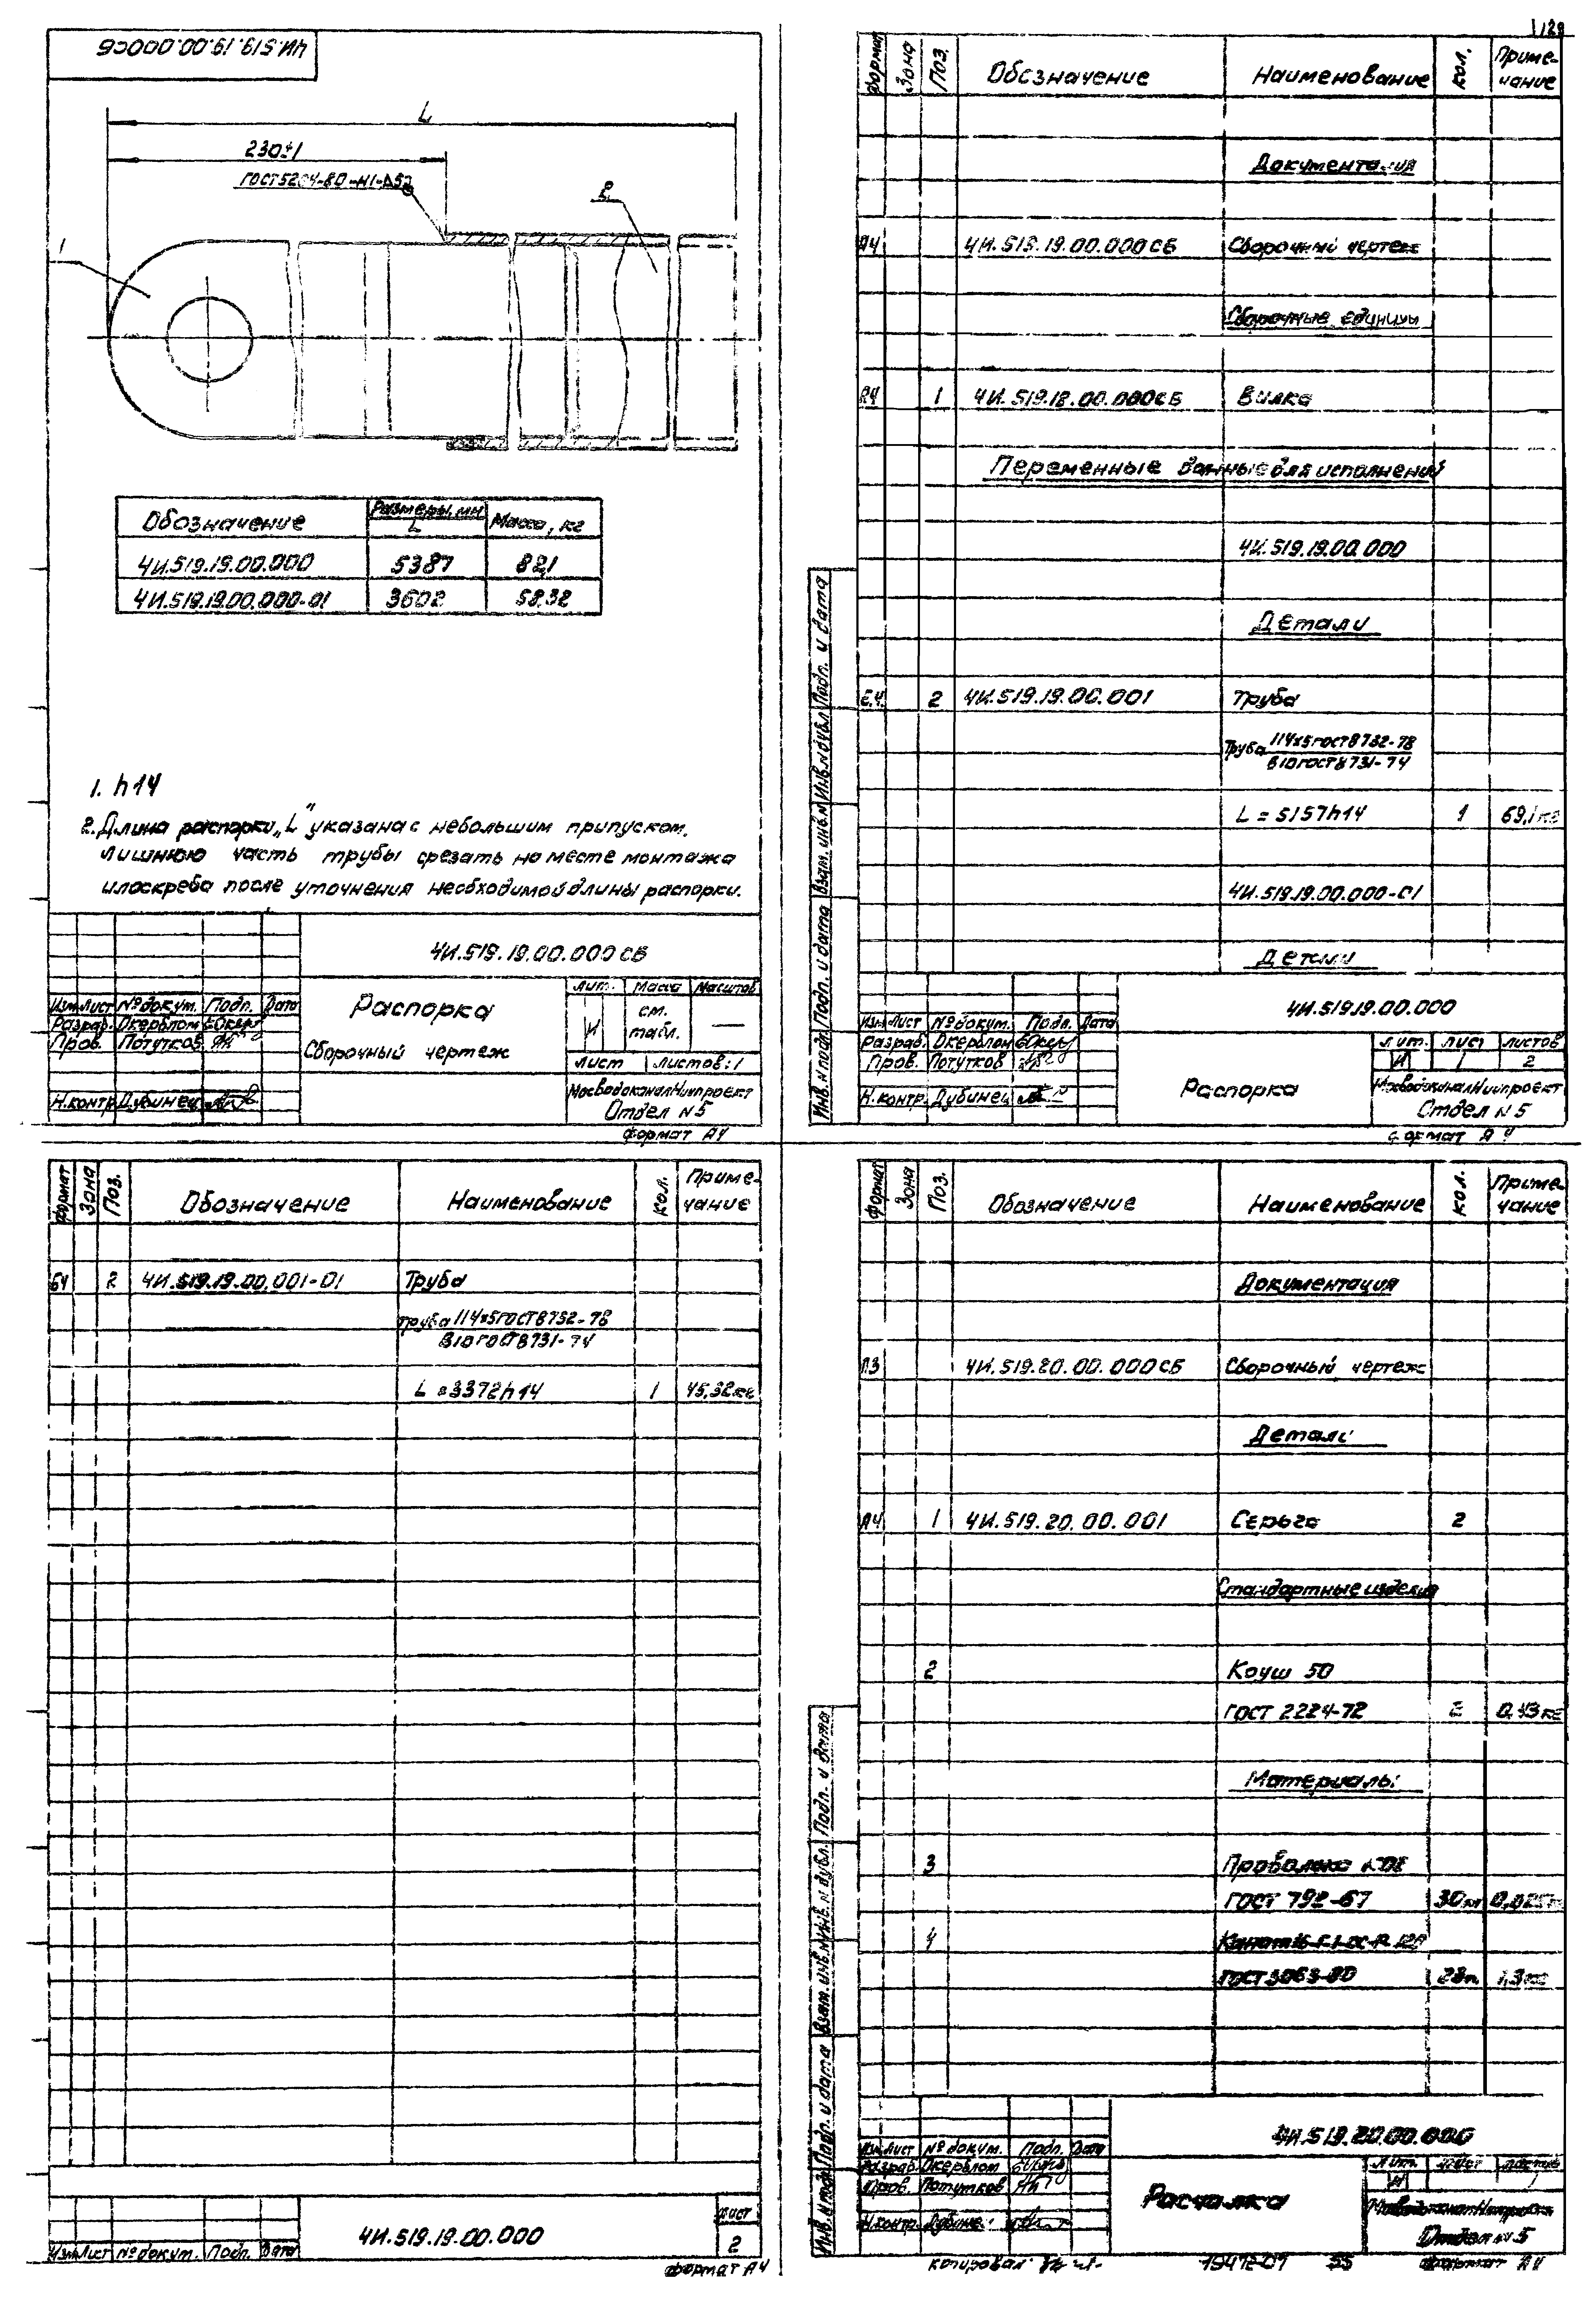 4И.519.19.00.000СБ
L
230±1
1
2
Обозначение
Размеры, мм
L
Масса, кг
4И.519.19.00.000
5387
82,1
4И.519.19.00.000-01
3602
58.32
1. h14
2. Длина распорки „L" указана с небольшим припуском.
Лишнюю часть трубы срезать на месте монтажа
илоскреба после уточнения необходимой длины распорки.
4И.519.19.00.000 СБ
Изм. Лист № докум. Подп. Дата
Разраб. Окерблом
Пров. Потутков
Н.контр. Дубинец
Распорка
Сборочный чертеж
Лит. Масса Масштаб
И
см.
табл.
—
Лист Листов: 1
МосводоканалНиипроект
Отдел N 5
Формат А4
Формат Зона Поз. Обозначение Наименование Кол. Приме-
чание
Документация
А4 4И.519.19.00.000СБ Сборочный чертеж
Сборочные единицы
А4 1 4И.519.18.00.000СБ Вилка
Переменные данные для исполнений
4И.519.19.00.000
Детали
2 4И.519.19.00.001 Труба
Труба 114х5 ГОСТ 8732-78
В10 ГОСТ 8731-74
L = 5157h14 1 69,1 кг
4И.519.19.00.000-01
Детали
Инв. N подл. Подп. и дата Взам. инв. N Инв. N дубл. Подп. и дата
4И.519.19.00.000
Изм. Лист № докум. Подп. Дата
Разраб. Окерблом
Пров. Потутков
Н.контр. Дубинец
Распорка
Лит. Лист Листов
И 1 2
МосводоканалНиипроект
Отдел N 5
Формат А4
Формат Зона Поз. Обозначение Наименование Кол. Приме-
чание
БЧ 2 4И.519.19.00.001-01 Труба
Труба 114х5 ГОСТ 8732-78
В10 ГОСТ 8731-74
L = 3372h14 1 45,32 кг
Изм. Лист № докум. Подп. Дата
4И.519.19.00.000
Лист
2
Формат А4
Формат Зона Поз. Обозначение Наименование Кол. Приме-
чание
Документация
А3 4И.519.20.00.000СБ Сборочный чертеж
Детали
А4 1 4И.519.20.00.001 Серьга 2
Стандартные изделия
2 Коуш 50
ГОСТ 2224-72 0,43 кг
Материалы
3 Проволока
ГОСТ 792-67 30м
4
ГОСТ 3063-80
Инв. N подл. Подп. и дата Взам. инв. N Инв. N дубл. Подп. и дата
4И.519.20.00.000
Изм. Лист № докум. Подп. Дата
Разраб. Окерблом
Пров. Потутков
Н.контр. Дубинец
Расчалка
Лит. Лист Листов
И 1
Отдел N 5
Копировал
Формат А4